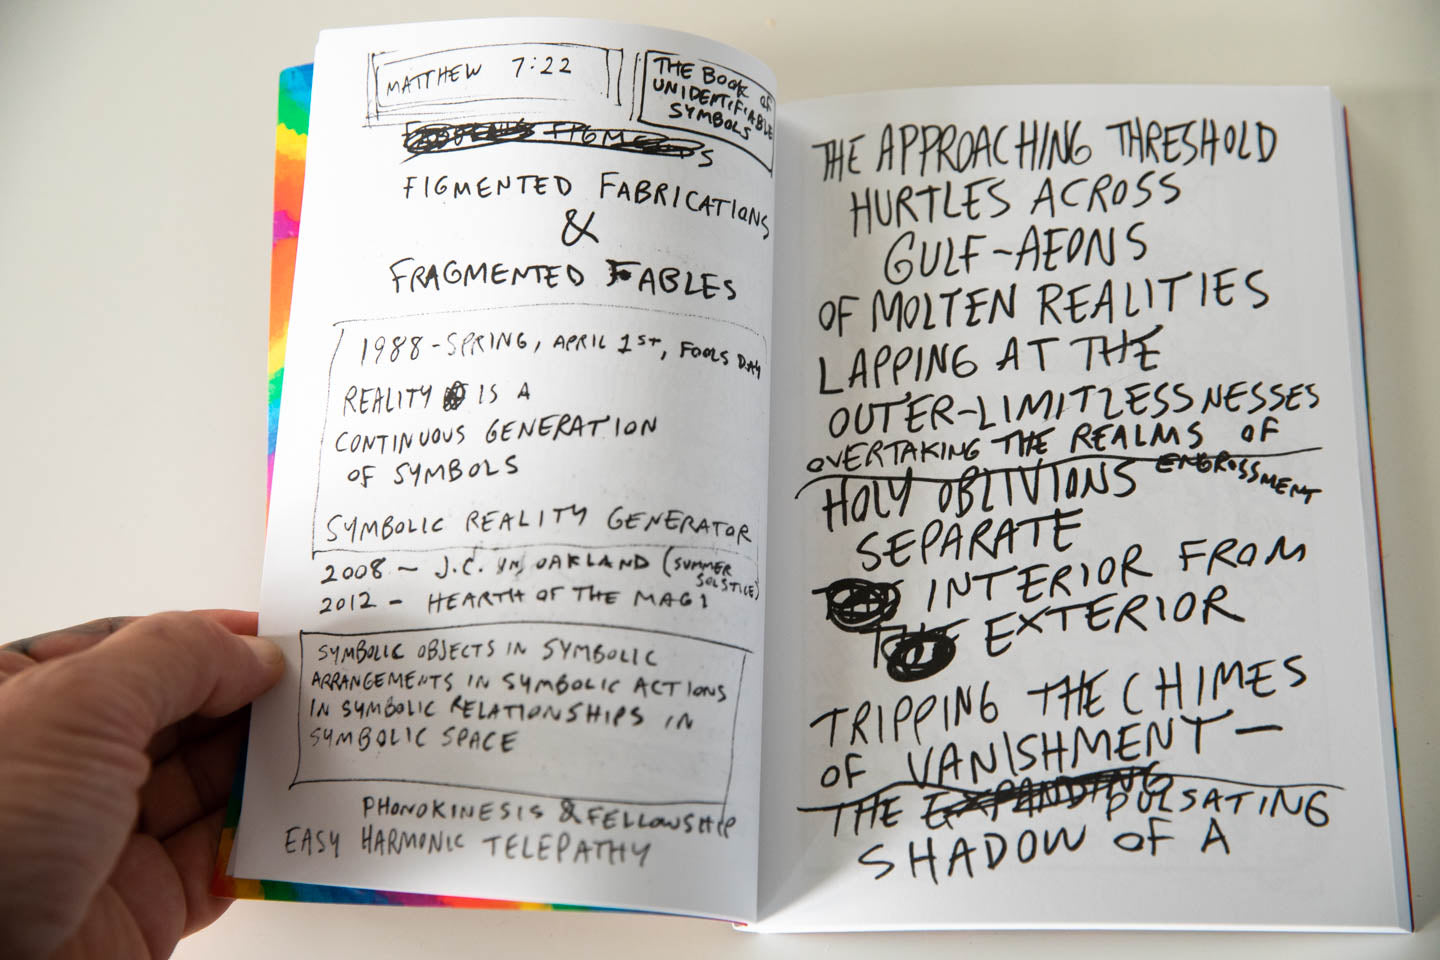 MATTHEW 7:22
THE BOOK OF
UNIDENTIFIABLE
SYMBOLS
FIGMENTED FABRICATIONS
&
FRAGMENTED FABLES
1988 - SPRING, APRIL 1ST, FOOLS DAY
REALITY IS A
CONTINUOUS GENERATION
OF SYMBOLS
SYMBOLIC REALITY GENERATOR
2008 - J.C. IN OAKLAND (SUMMER
SOLSTICE)
2012 - HEARTH OF THE MAGI
SYMBOLIC OBJECTS IN SYMBOLIC
ARRANGEMENTS IN SYMBOLIC ACTIONS
IN SYMBOLIC RELATIONSHIPS IN
SYMBOLIC SPACE
PHONOKINESIS & FELLOWSHIP
EASY HARMONIC TELEPATHY
THE APPROACHING THRESHOLD
HURTLES ACROSS
GULF-AEONS
OF MOLTEN REALITIES
LAPPING AT THE
OUTER-LIMITLESSNESSES
OVERTAKING THE REALMS OF
ENGROSSMENT
HOLY OBLIVIONS
SEPARATE
INTERIOR FROM
EXTERIOR
TRIPPING THE CHIMES
OF VANISHMENT -
THE EXPANDING PULSATING
SHADOW OF A